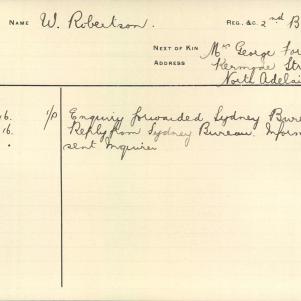 NAME W. Robertson. REG. &C. 2nd B
NEXT OF KIN Mrs George
ADDRESS Kermode Str
North Adelai
16. 1/P Enquiry forwarded Sydney Bure
16. Reply from Sydney Bureau. Inform
sent Inquirer